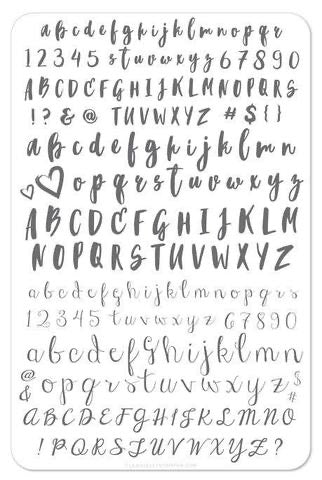 a b c d e f g h i j k l m n o p q r
1 2 3 4 5 s t u v w x y z 6 7 8 9 0
A B C D E F G H I J K L M N O P Q R S
! ? & @ T U V W X Y Z # $ { }
a b c d e f g h i j k l m n
o p q r s t u v w x y z
A B C D E F G H I J K L M
N O P Q R S T U V W X Y Z
a b c d e f g h i j k l m n o p q r s
1 2 3 4 5 t u v w x y z 6 7 8 9 0
a b c d e f g h i j k l m n
@ & o p q r s t u v w x y z $ #
A B C D E F G H I J K L M N O
! P Q R S T U V W X Y Z ?